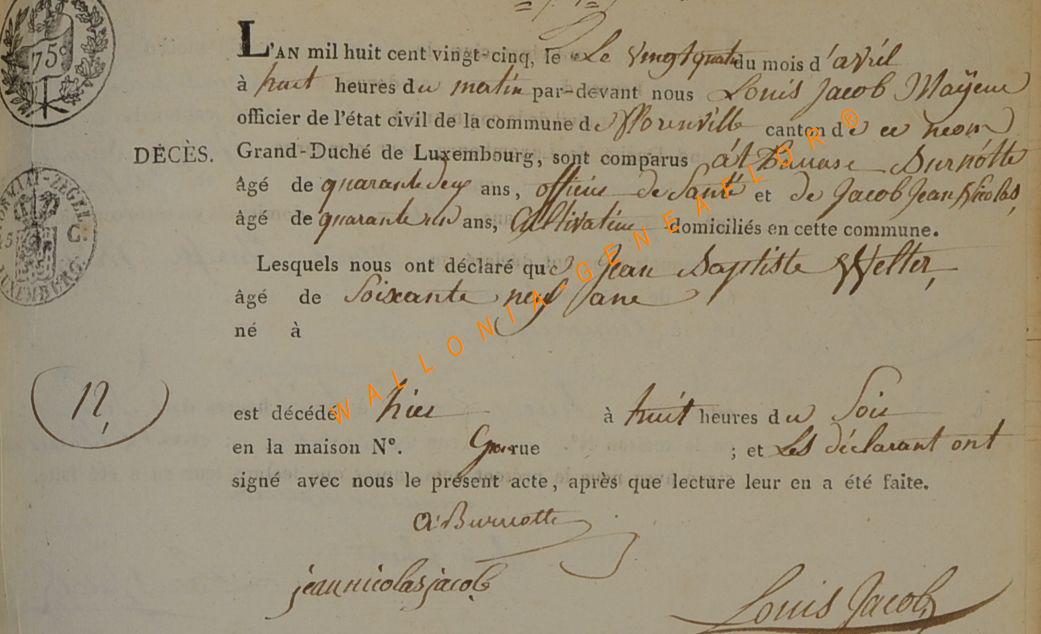 75 c
L'AN mil huit cent vingt-cinq, le Le vingt quatre du mois d'avril
à huit heures du matin par-devant nous Louis Jacob Mayeur
officier de l'état civil de la commune de canton de ce nom
DÉCÈS. Grand-Duché de Luxembourg, sont comparus Burnotte
âgé de quarante deux ans, officier de Santé et de Jacob Jean Nicolas,
âgé de quarante un ans, Cultivateur domiciliés en cette commune.
Lesquels nous ont déclaré que Jean Baptiste Welter,
âgé de Soixante neuf ans
né à
12,
est décédé hier à huit heures du Soir
en la maison N°. rue ; et Les déclarant ont
signé avec nous le présent acte, après que lecture leur en a été faite.
a: Burnotte
jean nicolas jacob
Louis Jacob
WALLONIA-GENEAFLOR ®